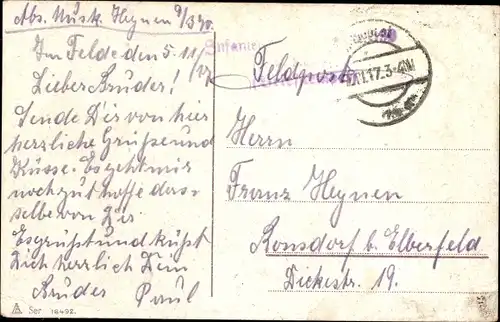 Abs. Musk. Heynen 9/390.
Im Felde den 5.11/17
Lieber Bruder!
Sende Dir von hier
herzliche Grüße und
Küsse. Es geht mir
noch gut hoffe das-
selbe von Dir.
Es grüßt und küßt
Dich herzlich Dein
Bruder Paul
Feldpost
11.17.3-4N
Herrn
Franz Heynen
Ronsdorf b. Elberfeld
Dickestr. 19.
Ser 16492.